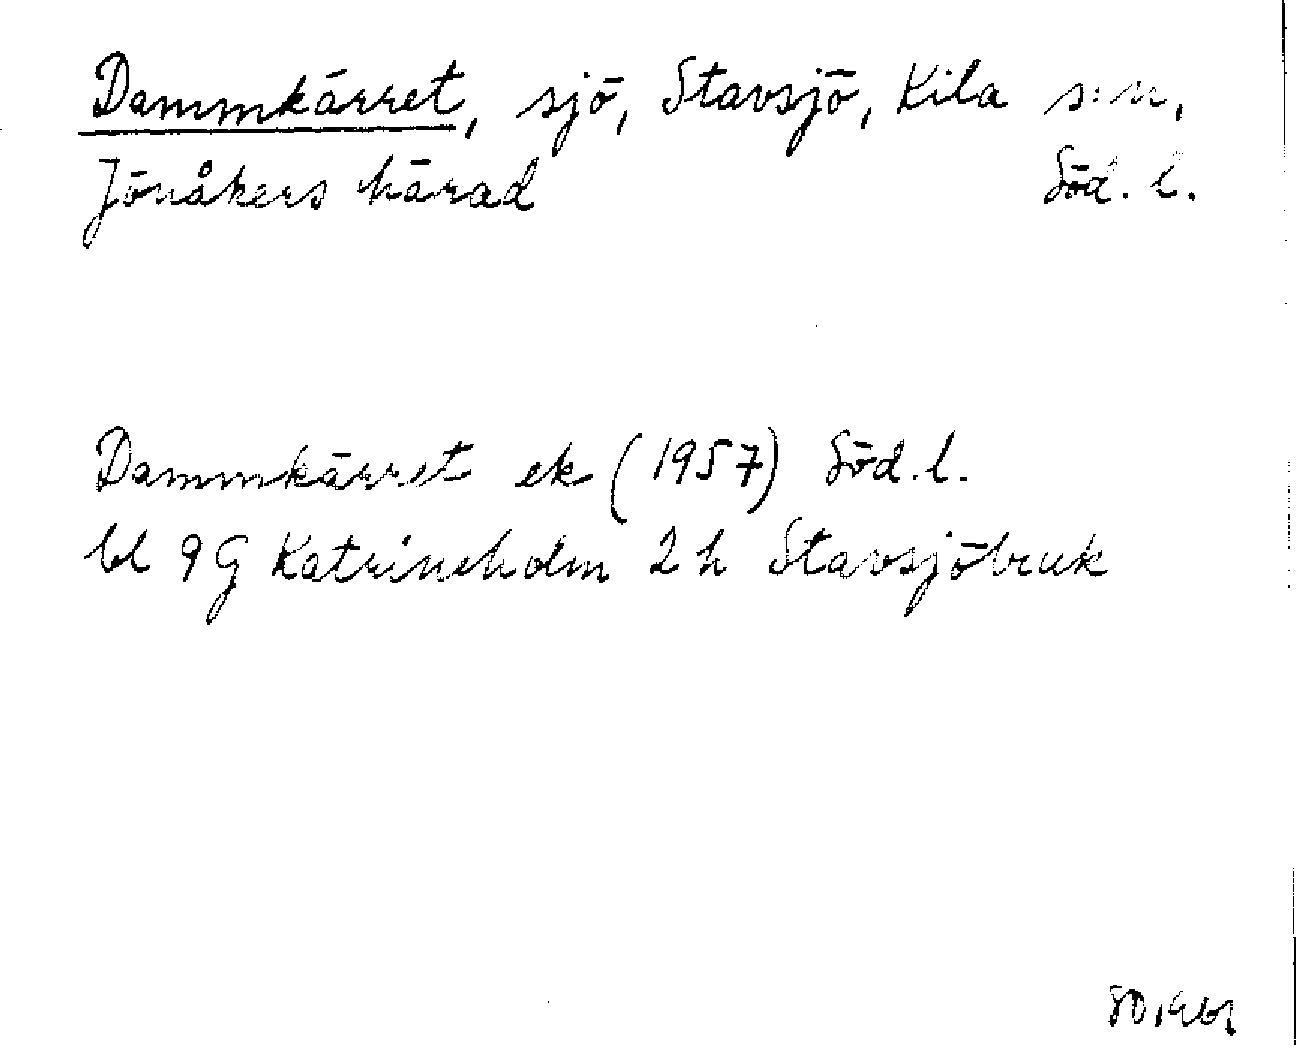 Dammkärret, sjö, Stavsjö, Kila s:n,
Jönåkers härad Söd. l.
Dammkärret ek (1957) Söd. l.
bl 9G Katrineholm 2h Stavsjöbruk